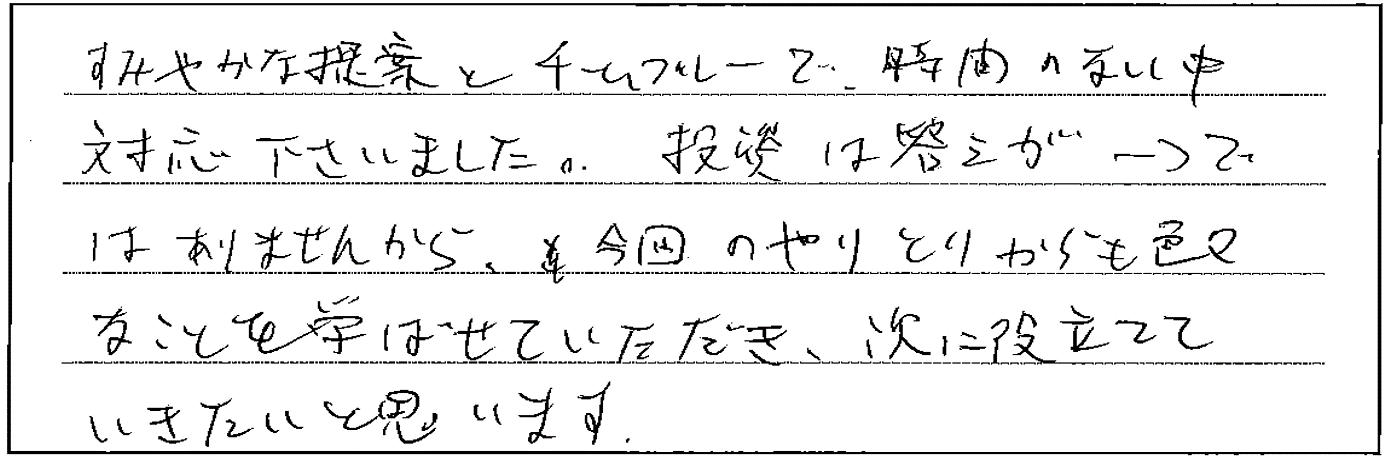 すみやかな提案とチームプレーで、時間のない中
対応下さいました。投資は答えが一つで
はありませんから、今回のやりとりからも色々
なことを学ばせていただき、次に役立てて
いきたいと思います。